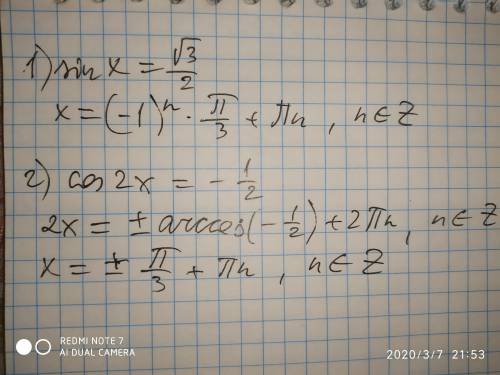 1) sin x = √3/2
x = (-1)ⁿ · П/3 + Пn , n ∈ Z
2) cos 2x = - 1/2
2x = ± arccos(- 1/2) + 2Пn , n ∈ Z
x = ± П/3 + Пn , n ∈ Z
REDMI NOTE 7
AI DUAL CAMERA
2020/3/7 21:53